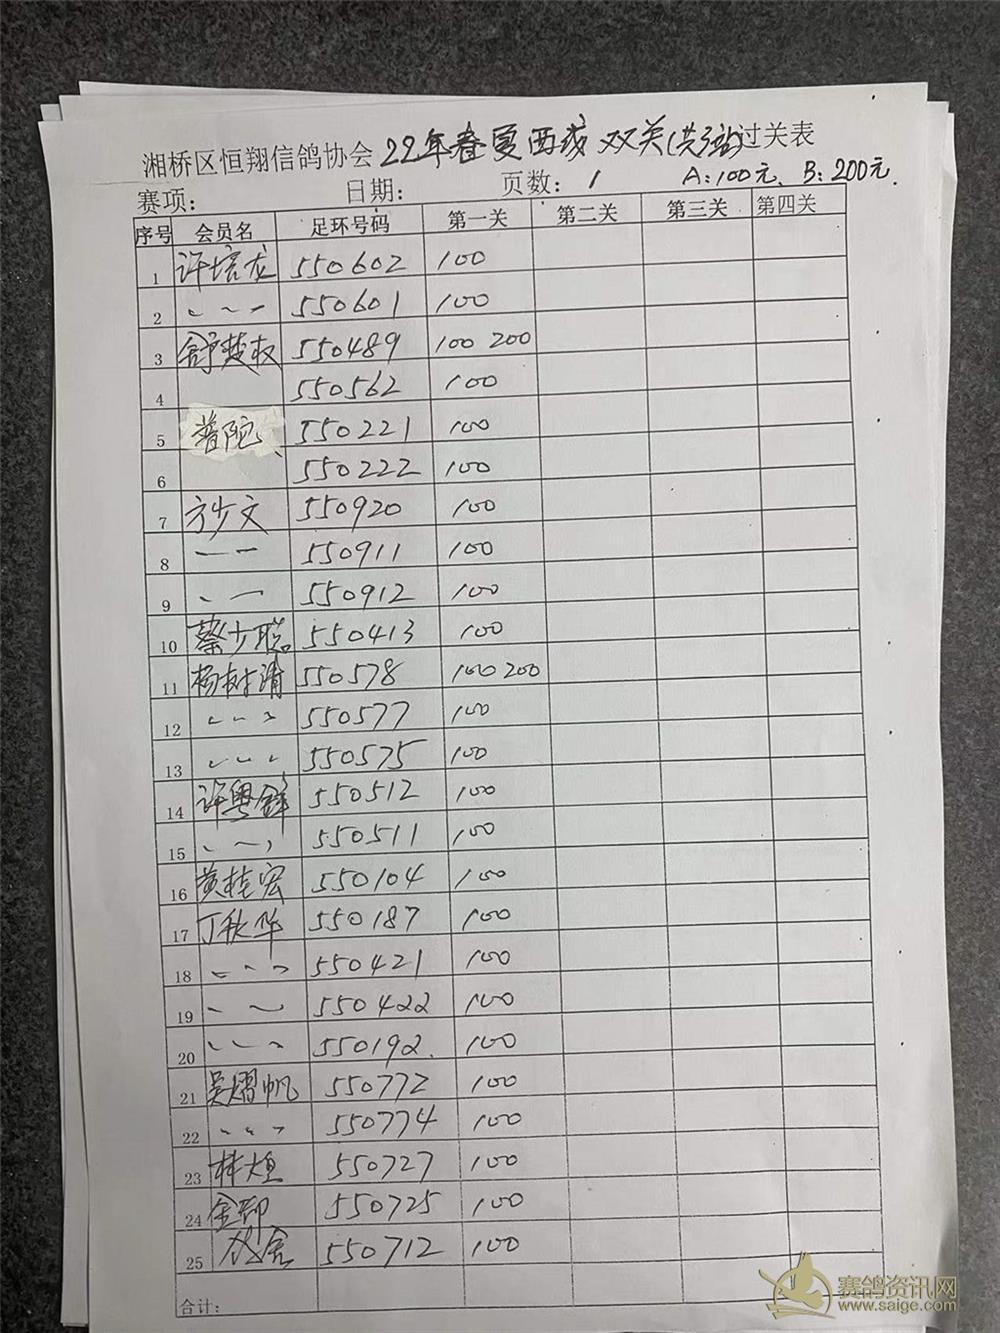 湘桥区恒翔信鸽协会22年春夏西线双关(共3站)过关表
赛项: 日期: 页数: 1 A:100元、B:200元.
序号 会员名 足环号码 第一关 第二关 第三关 第四关
1 许培龙 550602 100
2 550601 100
3 舒楚权 550489 100 200
4 550562 100
5 普陀 550221 100
6 550222 100
7 方少文 550920 100
8 550911 100
9 550912 100
10 蔡少聪 550413 100
11 杨树清 550578 100 200
12 550577 100
13 550575 100
14 许粤锋 550512 100
15 550511 100
16 黄桂宏 550104 100
17 丁秋华 550187 100
18 550421 100
19 550422 100
20 550192. 100
21 吴熠帆 550772 100
22 550774 100
23 林烜 550727 100
24 550725 100
25 550712 100
合计:
赛鸽资讯网
www.saige.com